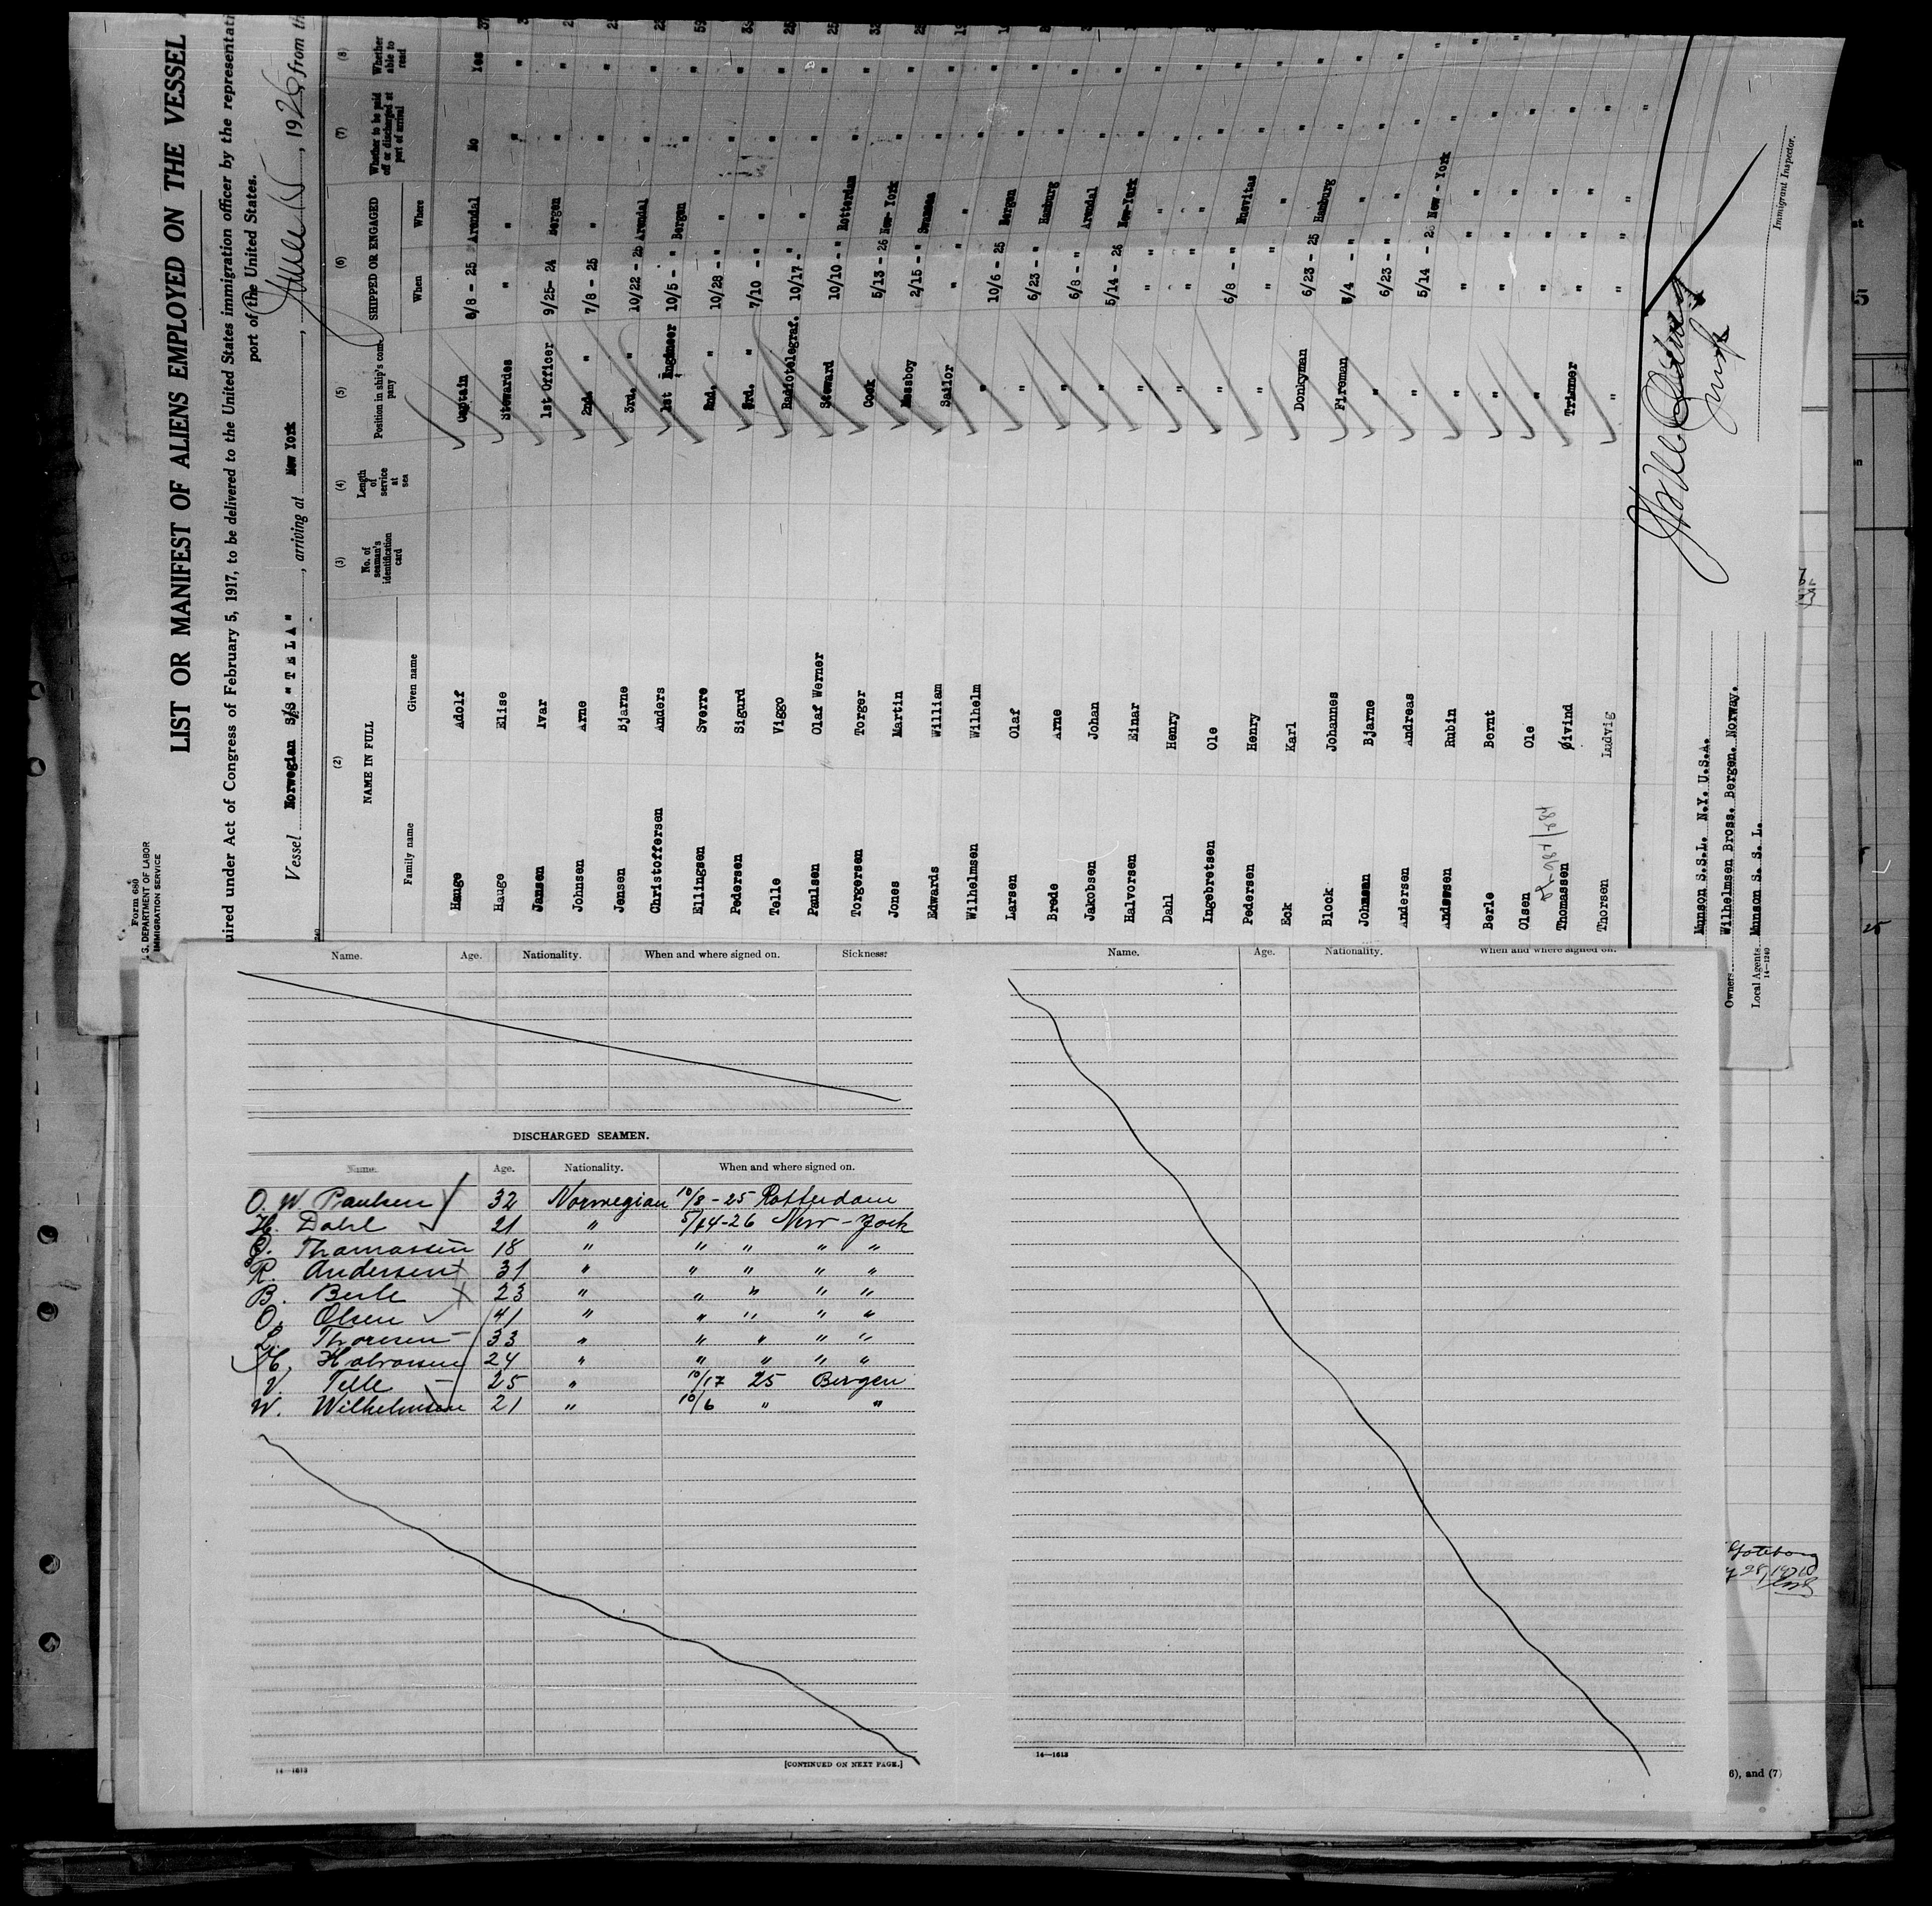 Form 680
U. S. DEPARTMENT OF LABOR
IMMIGRATION SERVICE
LIST OR MANIFEST OF ALIENS EMPLOYED ON THE VESSEL
uired under Act of Congress of February 5, 1917, to be delivered to the United States immigration officer by the representati
port of the United States.
Vessel Norwegian S/S "TELA", arriving at New York, June 15, 1926, from th
(2) (3) (4) (5) (6) (7) (8)
NAME IN FULL No. of seaman's identification card Length of service at sea Position in ship's company SHIPPED OR ENGAGED Whether to be paid off or discharged at port of arrival Whether able to read
Family name Given name When Where
Hauge Adolf Captain 6/8 - 25 Arendal No Yes
Hauge Elise Stewardes " " " "
Jansen Ivar 1st Officer 9/25- 24 Bergen " "
Johnsen Arne 2nd. " 7/8 - 25 " " "
Jensen Bjarne 3rd. " 10/22 - 25 Arendal " "
Christoffersen Anders 1st Engineer 10/5 - " Bergen " "
Ellingsen Sverre 2nd. " 10/28 - " " " "
Pedersen Sigurd 3rd. " 7/10 - " " " "
Telle Viggo Radiotelegraf. 10/17 - " " " "
Paulsen Olaf Werner Steward 10/10 - " Rotterdam " "
Torgersen Torger Cook 5/13 - 26 New-York " "
Jones Martin Messboy 2/15 - " Swansea " "
Edwards William Sailor " " " "
Wilhelmsen Wilhelm " 10/6 - 25 Bergen " "
Larsen Olaf " 6/23 - " Hamburg " "
Brede Arne " 6/8 - " Arendal " "
Jakobsen Johan " 5/14 - 26 New-York " "
Halvorsen Einar " " " " "
Dahl Henry " " " " "
Ingebretsen Ole " 6/8 - " Nuevitas " "
Pedersen Henry " " " " "
Eck Karl Donkyman 6/23 - 25 Hamburg " "
Block Johannes Fireman 5/4 - " " " "
Johnsen Bjarne " 6/23 - " " " "
Andersen Andreas " 5/14 - 26 New - York " "
Andersen Rubin " " " " "
Berle Bernt " " " " "
Olsen Ole " " " " "
Thomassen Øivind Trimmer " " " "
Thorsen Ludvig " " " "
Munson S.S.L. N.Y. U.S.A.
Owners Wilhelmsen Bross. Bergen. Norway.
Local Agents Munson S. S. L.
14—1240
Immigrant Inspector.
Name. Age. Nationality. When and where signed on. Sickness.
DISCHARGED SEAMEN.
Name. Age. Nationality. When and where signed on.
O. W. Paulsen 32 Norwegian 10/8 - 25 Rotterdam
H. Dahl 21 " 5/14-26 New-York
Ø. Thomassen 18 " " " " "
R. Andersen 31 " " " " "
B. Berle 23 " " " " "
O. Olsen 41 " " " " "
L. Thorsen 33 " " " " "
H. Halvorsen 24 " " " " "
V. Telle 25 " 10/17 25 Bergen
W. Wilhelmsen 21 " 10/6 " "
14—1613
[CONTINUED ON NEXT PAGE.]
Name. Age. Nationality. When and where signed on.
14—1613
Goteborg
6), and (7)